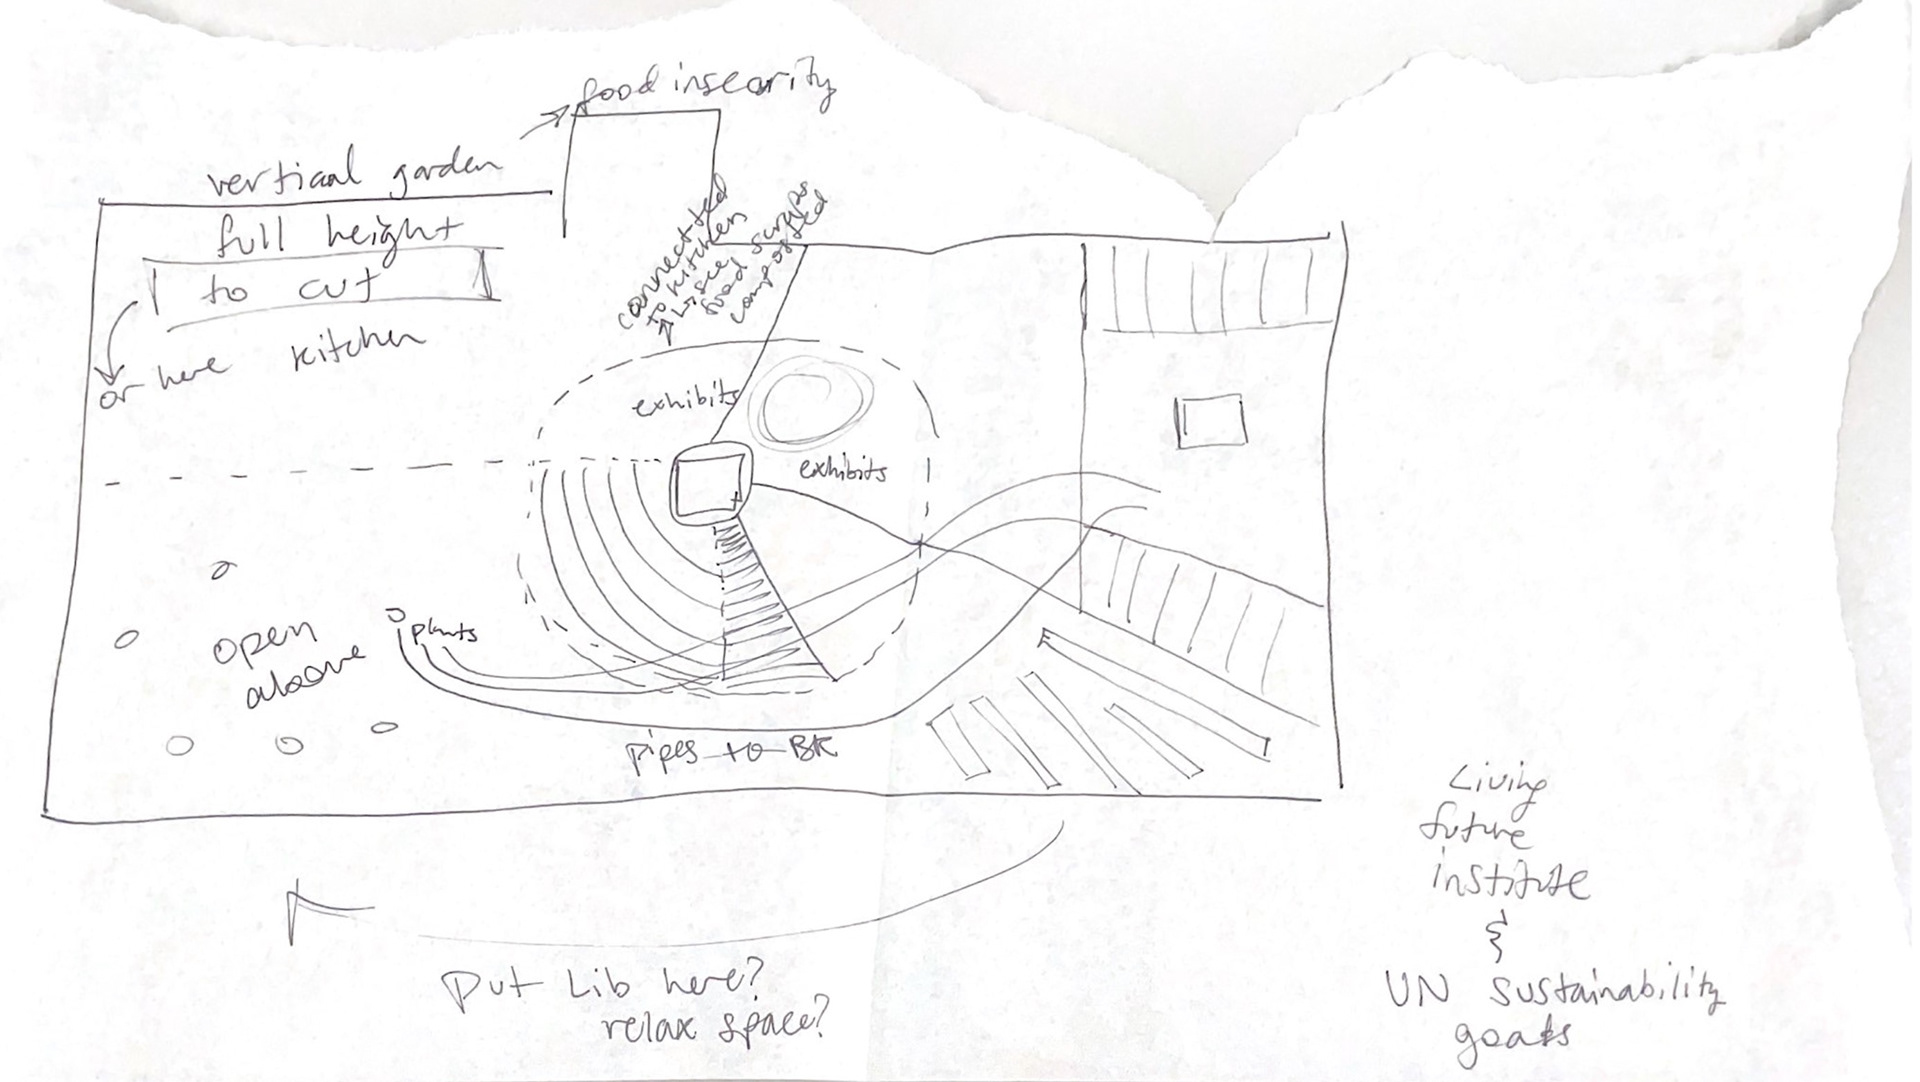 food insecurity
vertical garden
full height
to cut
or here kitchen
connected
to kitchen
↳ see
food scraps
composted
exhibits
exhibits
open
above
plants
pipes to BK
Put Lib here?
relax space?
Living
future
institute
&
UN sustainability
goals